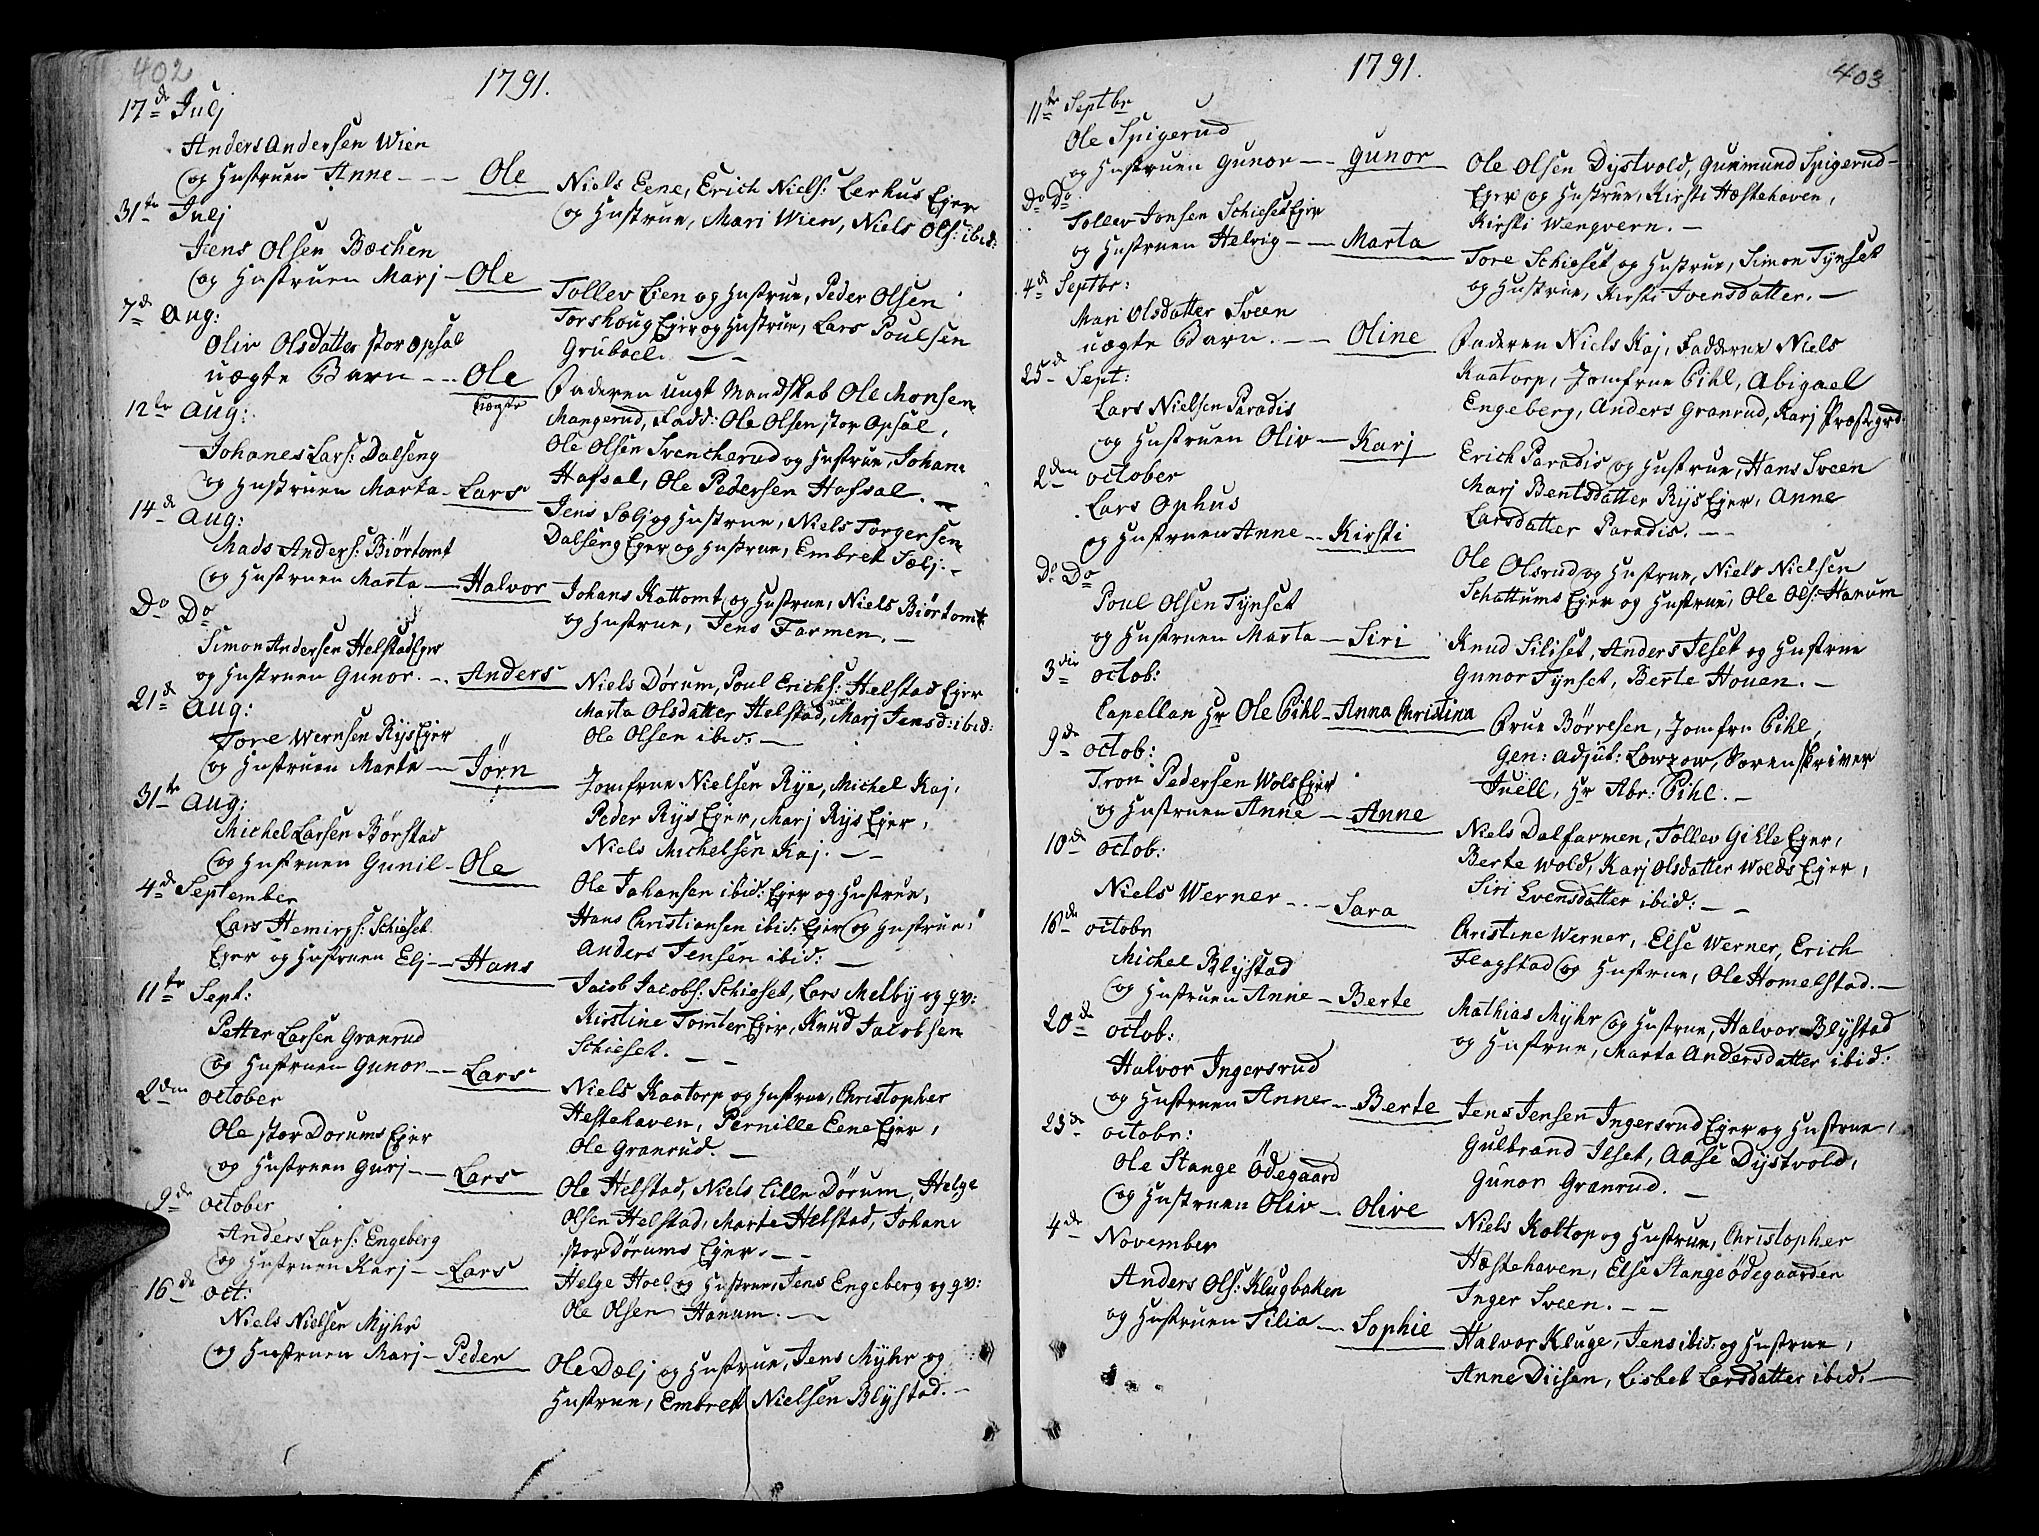 402
1791.
17de Julj
Anders Andersen Wien
og Hustruen Anne - - - Ole
Niels Eene, Erich Niels: Lerhus Ejer
og Hustrue, Mari Wien, Niels Ols: ibid:
31te Julj
Jens Olsen Bæchen
og Hustruen Marj - Ole
Tollev Lien og Hustrue, Peder Olsen
Torshoug Ejer og Hustrue, Lars Poulsen
Grubael. —
7de Aug:
Oliv Olsdatter stor Opsal
uægte Barn - - - Ole
uægte
Faderen ungt Mandskab Ole Monsen
Mangerud, Fadd: Ole Olsen stor Opsal,
Ole Olsen Svencherud og Hustrue, Johan
Hafsal, Ole Pedersen Hafsal. —
12te Aug:
Johanes Lars: Dalseng
og Hustruen Marta - Lars
Jens Sælj og Hustrue, Niels Torgersen
Dalseng Ejer og Hustrue, Embret Sælj. -
14de Aug:
Mads Anders: Biørtomt
og Hustruen Marta - Halvor
Johans Kattomt og Hustrue, Niels Biørtomt
og Hustrue, Jens Farmen. —
Do Do
Simon Andersen Helstad Ejer
og Hustruen Gunor. - Anders
Niels Dørum, Poul Erichs: Helstad Ejer
Marta Olsdatter Helstad, Marj Jensd: ibid:
Ole Olsen ibid: —
21de Aug:
Tore Wernsen Rijs Ejer
og Hustruen Marte - Jörn
Jomfrue Nielsen Rye, Michel Kaj,
Peder Rijs Ejer, Marj Rijs Ejer,
Niels Michelsen Kaj. —
31te Aug:
Michel Larsen Börstad
og Hustruen Gunil - Ole
Ole Johansen ibid: Ejer og Hustrue,
Hans Christiansen ibid: Ejer og Hustrue,
Anders Jensen ibid: —
4de September
Lars Hemings: Schieset
Ejer og Hustruen Elj - Hans
Jacob Jacobs: Schieset, Lars Melby og qv:
Kirstine Tomter Ejer, Knud Jacobsen
Schieset. —
11te Sept:
Petter Larsen Granrud
og Hustruen Gunor - Lars
Niels Kaatorp og Hustrue, Christopher
Hestehaven, Pernille Eene Ejer,
Ole Granrud. —
2den October
Ole stor Dorums Ejer
og Hustruen Gurj - Lars
Ole Helstad, Niels Lille Dörum, Helge
Olsen Helstad, Marte Helstad, Johan
stor Dörums Ejer. —
9de October
Anders Lars: Engeberg
og Hustruen Karj - Lars
Helge Hoel og Hustrue, Jens Engeberg og qv:
Ole Olsen Hanum. —
16de Oct:
Niels Nielsen Mijhr
og Hustruen Marj - Peder
Ole Dælj og Hustrue, Jens Mijhr og
Hustrue, Embret Nielsen Blijstad. —
403
1791.
11te Septbr
Ole Spigerud
og Hustruen Gunor - - Gunor
Ole Olsen Dystvold, Gunmund Spigerud
Ejer og Hustrue, Kirsti Hæstehaven,
Kirsti Wengvern. —
Do Do
Tollev Jonsen Schieset Ejer
og Hustruen Helvig - - Marta
Tore Schieset og Hustrue, Simon Tynset
og Hustrue, Kirsti Ivensdatter. —
4de Septbr:
Mari Olsdatter Sveen
uægte Barn. - - Oline
Faderen Niels Kaj, Fadderne Niels
Kaatorp, Jomfrue Pihl, Abigael
Engeberg, Anders Granrud, Karj Præstegrd.
25de Sept:
Lars Nielsen Paradis
og Hustruen Oliv - Karj
Erich Paradis og Hustrue, Hans Sveen
Marj Bentsdatter Rijs Ejer, Anne
Larsdatter Paradis. —
2den October
Lars Ophus
og Hustruen Anne - Kirsti
Ole Olsrud og Hustrue, Niels Nielsen
Schattums Ejer og Hustrue, Ole Ols: Hanum
Do Do
Poul Olsen Tynset
og Hustruen Marta - Siri
Knud Siliset, Anders Ilset og Hustrue
Gunor Tynset, Berte Houen. —
3die Octob:
Capellan Hr Ole Pihl - Anna Christina
Frue Börresen, Jomfru Pihl,
Gen: Adjut: Lowzow, Sorenskriver
Juell, Hr Abr: Pihl. —
9de Octob:
Tron Pedersen Wols Ejer
og Hustruen Anne - Anne
Niels Dalfarmen, Tollev Gikle Ejer,
Berte Wold, Karj Olsdatter Wolds Ejer,
Siri Svensdatter ibid: —
10de Octob:
Niels Werner - - Sara
Christine Werner, Else Werner, Erich
Flagstad og Hustrue, Ole Homelstad. —
16de Octobr
Michel Blijstad
og Hustruen Anne - Berte
Mathias Mijhr og Hustrue, Halvor Blijstad
og Hustrue, Marta Andersdatter ibid:
20de Octob:
Halvor Ingersrud
og Hustruen Anne - Berte
Jens Jensen Ingersrud Ejer og Hustrue,
Gulbrand Ilset, Aase Dijstvold,
Gunor Granrud. —
23de Octobr:
Ole Stange Ödegaard
og Hustruen Oliv - Olive
Niels Koltop og Hustrue, Christopher
Hæstehaven, Else Stange Ödegaarden
Inger Sveen. —
4de November
Anders Ols: Klugbaken
og Hustruen Silia - Sophie
Halvor Kluge, Jens ibid: og Hustrue,
Anne Diisen, Lisbet Larsdatter ibid: —